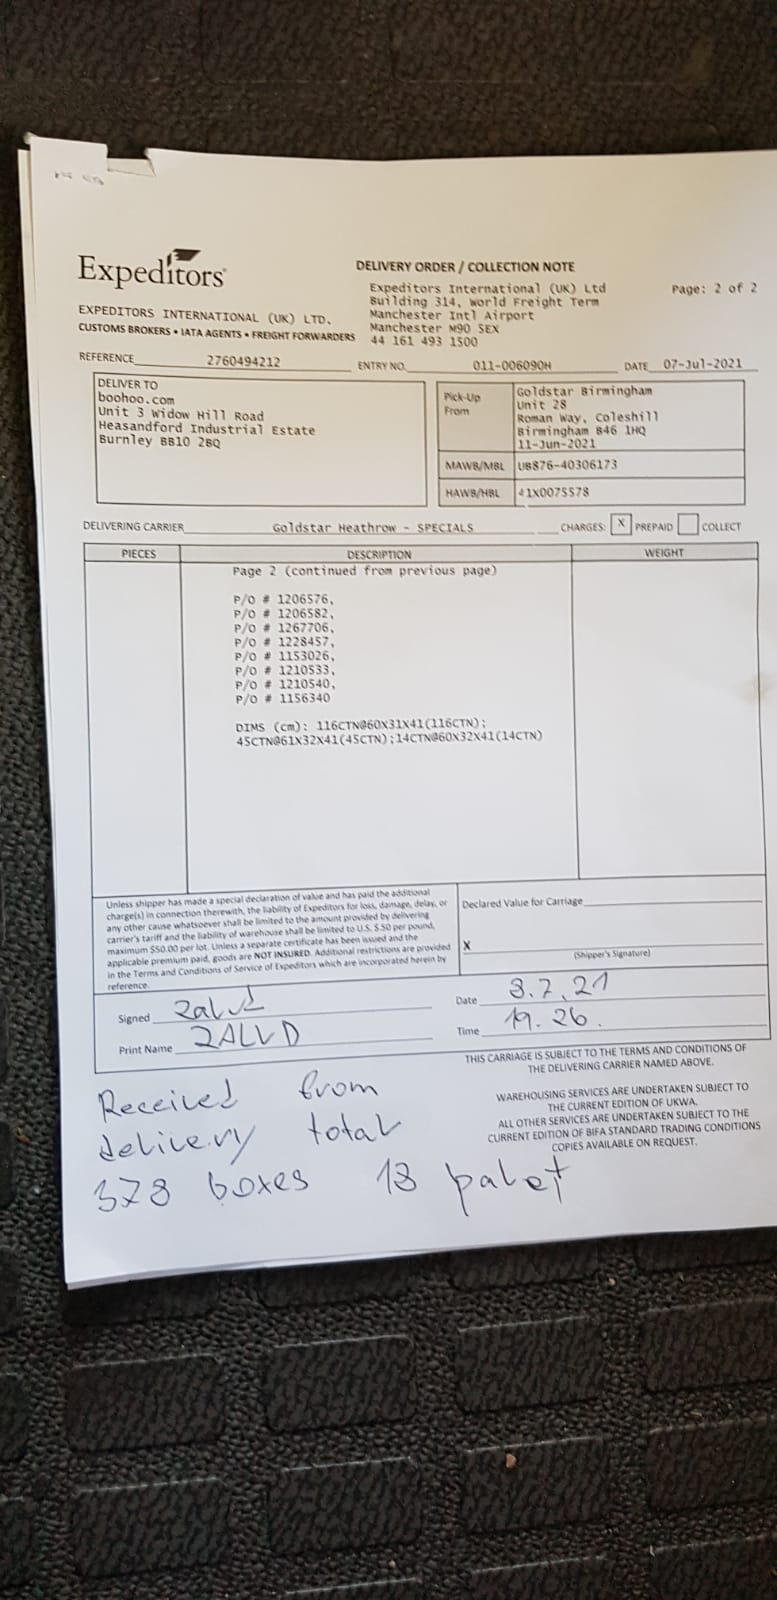 Expeditors
EXPEDITORS INTERNATIONAL (UK) LTD.
CUSTOMS BROKERS • IATA AGENTS • FREIGHT FORWARDERS
DELIVERY ORDER / COLLECTION NOTE
Expeditors International (UK) Ltd
Building 314, World Freight Term
Manchester Intl Airport
Manchester M90 5EX
44 161 493 1500
Page: 2 of 2
REFERENCE 2760494212 ENTRY NO. 011-006090H DATE 07-Jul-2021
DELIVER TO
boohoo.com
Unit 3 Widow Hill Road
Heasandford Industrial Estate
Burnley BB10 2BQ
Pick-Up
From
Goldstar Birmingham
Unit 28
Roman Way, Coleshill
Birmingham B46 1HQ
11-Jun-2021
MAWB/MBL UB876-40306173
HAWB/HBL 41X0075578
DELIVERING CARRIER Goldstar Heathrow - SPECIALS CHARGES: X PREPAID COLLECT
PIECES DESCRIPTION WEIGHT
Page 2 (continued from previous page)
P/O # 1206576,
P/O # 1206582,
P/O # 1267706,
P/O # 1228457,
P/O # 1153026,
P/O # 1210533,
P/O # 1210540,
P/O # 1156340
DIMS (cm): 116CTN@60X31X41(116CTN);
45CTN@61X32X41(45CTN);14CTN@60X32X41(14CTN)
Unless shipper has made a special declaration of value and has paid the additional
charge(s) in connection therewith, the liability of Expeditors for loss, damage, delay, or
any other cause whatsoever shall be limited to the amount provided by delivering
carrier's tariff and the liability of warehouse shall be limited to U.S. $.50 per pound,
maximum $50.00 per lot. Unless a separate certificate has been issued and the
applicable premium paid, goods are NOT INSURED. Additional restrictions are provided
in the Terms and Conditions of Service of Expeditors which are incorporated herein by
reference.
Declared Value for Carriage
X
(Shipper's Signature)
Signed
Print Name
Date 8.7.21
Time 19.26.
THIS CARRIAGE IS SUBJECT TO THE TERMS AND CONDITIONS OF
THE DELIVERING CARRIER NAMED ABOVE.
WAREHOUSING SERVICES ARE UNDERTAKEN SUBJECT TO
THE CURRENT EDITION OF UKWA.
ALL OTHER SERVICES ARE UNDERTAKEN SUBJECT TO THE
CURRENT EDITION OF BIFA STANDARD TRADING CONDITIONS
COPIES AVAILABLE ON REQUEST.
Received from
delivery total
378 boxes 18 palet